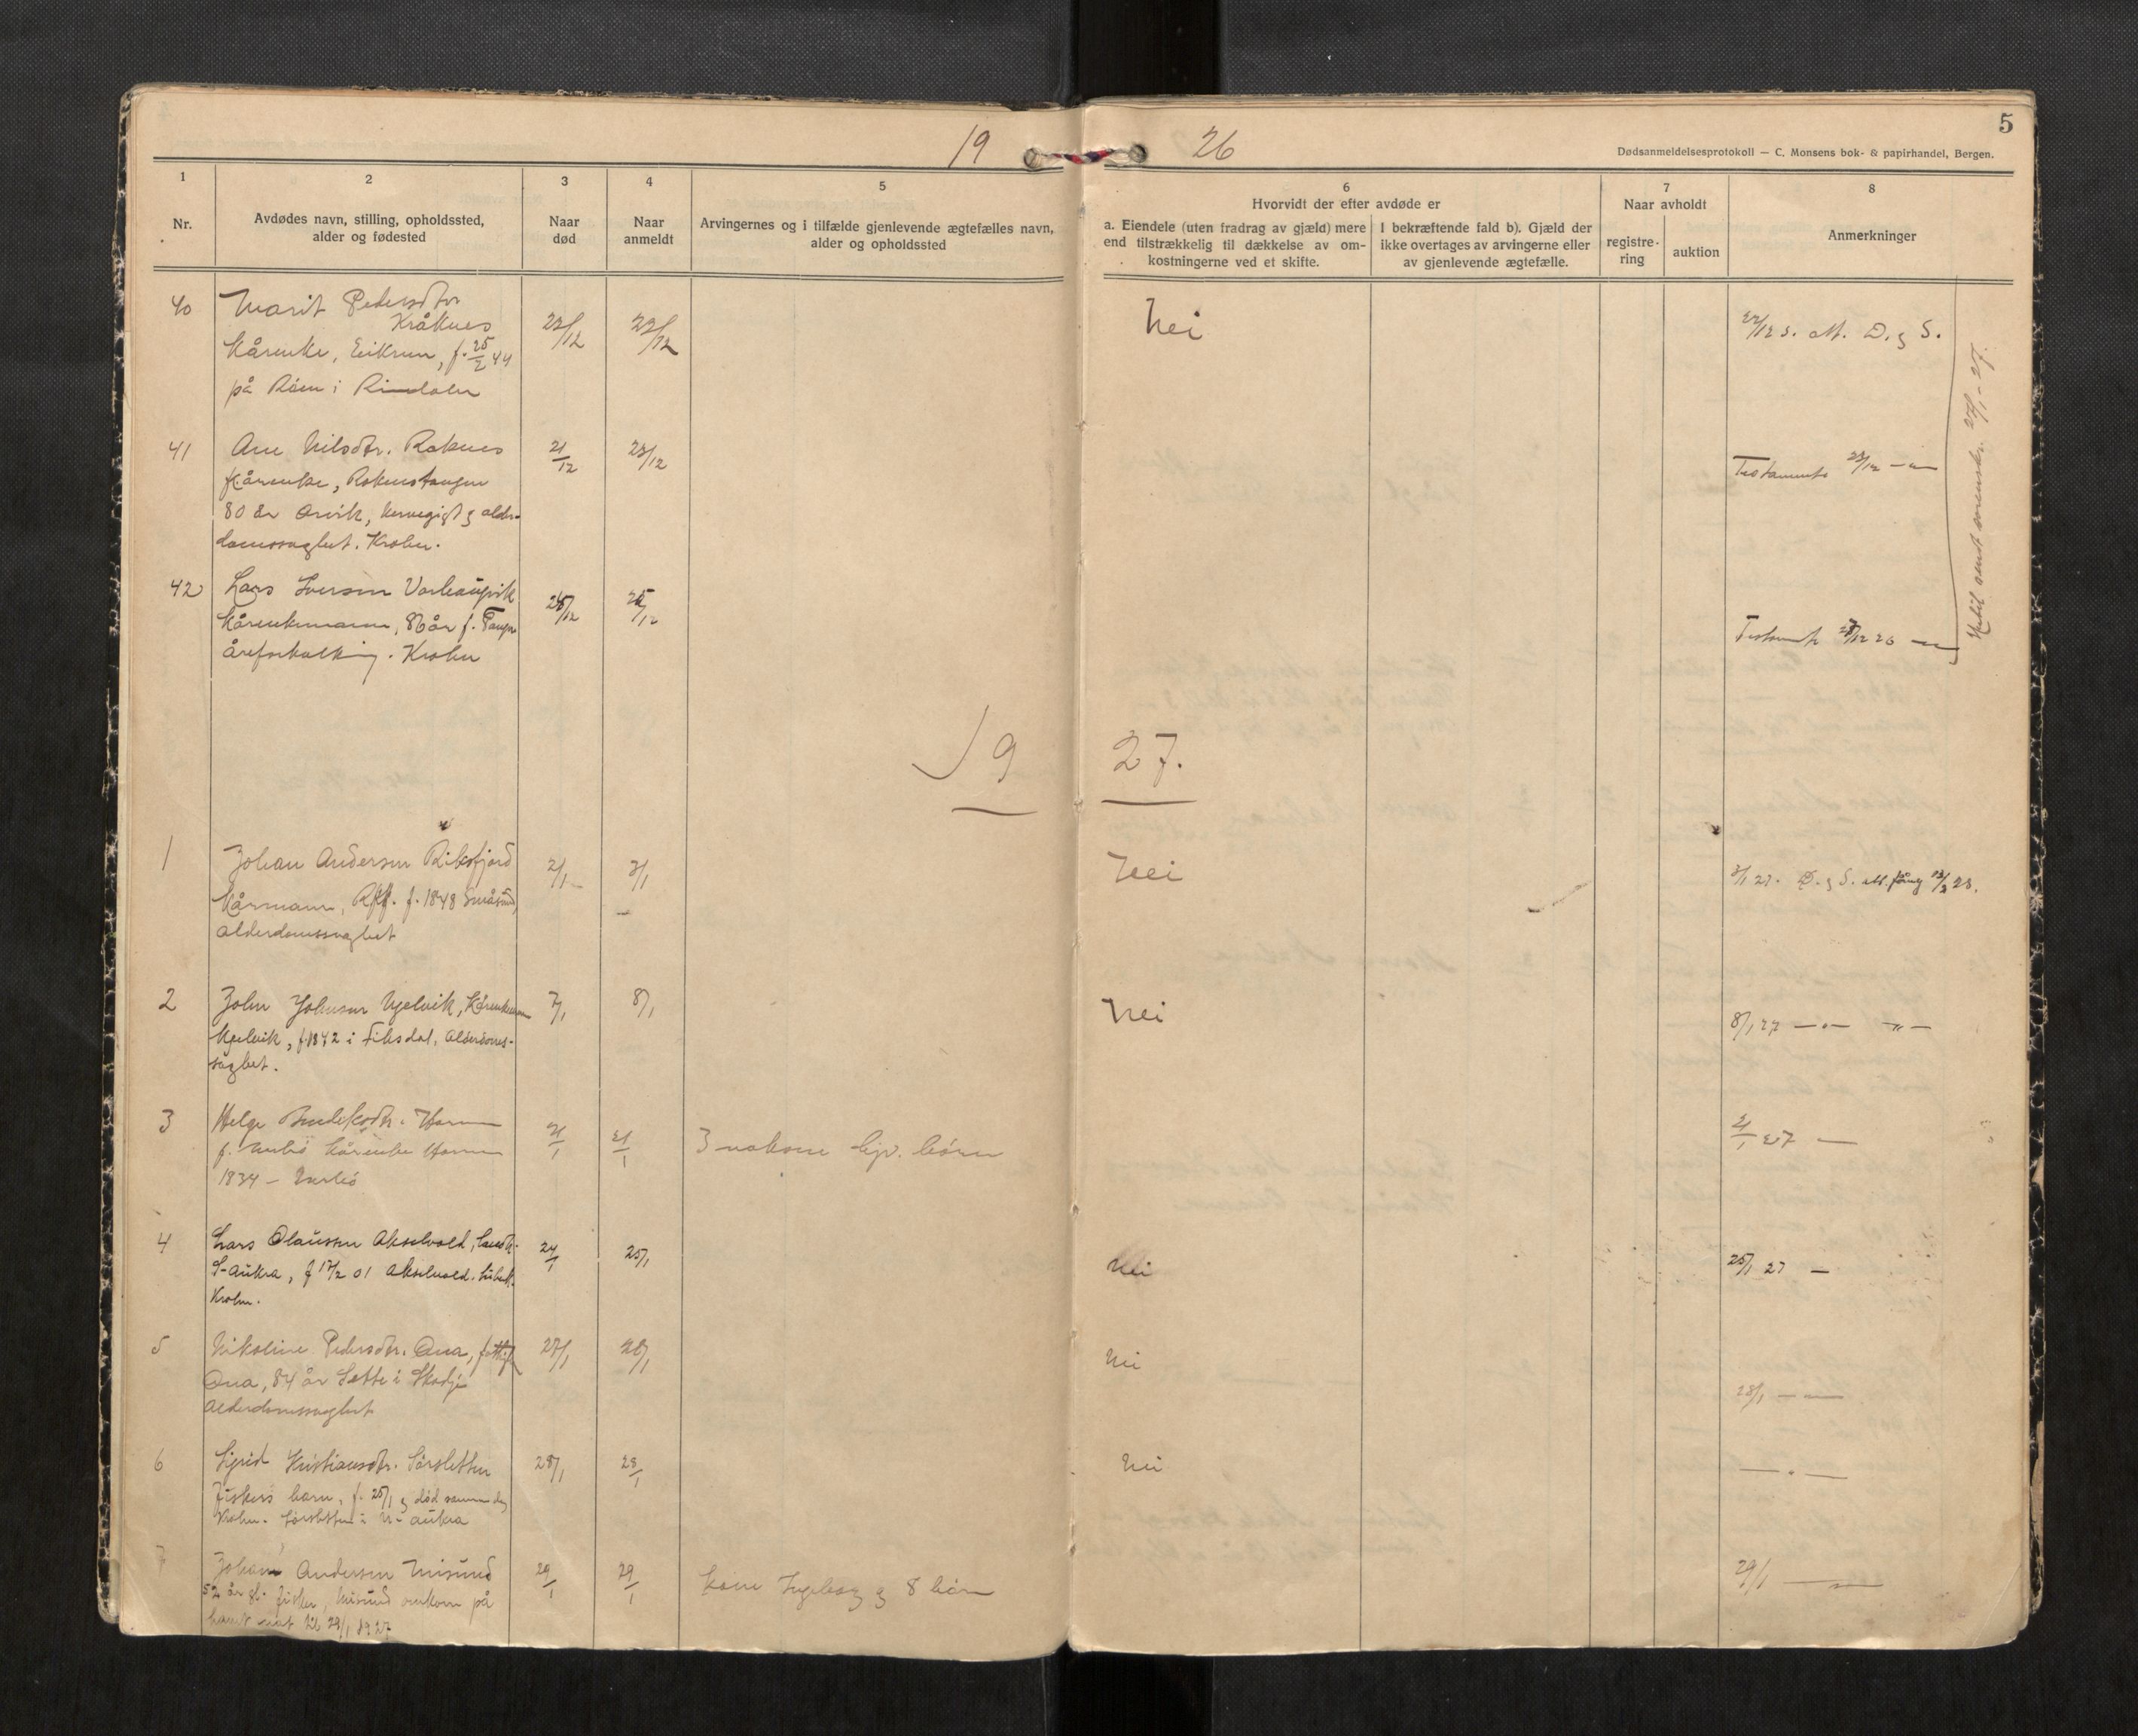 19 26
5
Dødsanmeldelsesprotokoll — C. Monsens bok- & papirhandel, Bergen.
1 2 3 4 5 6 7 8
Nr.
Avdødes navn, stilling, opholdssted,
alder og fødested
Naar
død
Naar
anmeldt
Arvingernes og i tilfælde gjenlevende ægtefælles navn,
alder og opholdssted
Hvorvidt der efter avdøde er
a. Eiendele (uten fradrag av gjæld) mere
end tilstrækkelig til dækkelse av om-
kostningerne ved et skifte.
I bekræftende fald b). Gjæld der
ikke overtages av arvingerne eller
av gjenlevende ægtefælle.
Naar avholdt
registre-
ring
auktion
Anmerkninger
40 Marit Pedersdtr
Kråknes
Kårenke, Eikrem, f. 25/2 44
på Röen i Rindalen
22/12 22/12 Nei 22/12 s. att. D. g S.
41 Ane Nilsdtr. Raknes
Kårenke, Raknestangen
80 år Orvik, alder-
domssvaghet. Krohn.
21/12 23/12 Testamente 23/12 — " —
42 Lars Iversen
Kårenkemann, 86 år f.
Åreforkalkning. Krohn
25/12 Testamente
27/1 - 27.
19 27.
1 Johan Andersen Riksfjord
Kårmann, f. 1848 Småsund,
alderdomssvaghet
2/1 3/1 Nei 3/1 27. D. g S. att.
2 John Johnsen Ugelvik, Kårenkemann
Ugelvik, f. 1842 i Fiksdal, Alderdoms-
svaghet.
7/1 8/1 Nei 8/1 27 — " — — " —
3 Helge Harøen
f. kårenke Harøen
1834 —
21/1 21/1 3 voksne børn 21/1 27 —
4 Lars Olaussen Akselvold,
S-Aukra, f 17/2 01 Akselvold.
Krohn.
24/1 25/1 Nei 25/1 27 —
5 Nikoline Pedersdtr. Ona,
Ona, 84 år Sætte i Skodje
Alderdomssvaghet
27/1 28/1 Nei 28/1 — —
6 Sigrid Kristiansdtr. Sörsletten
Fiskers barn, f. 25/1 g död samme dag
Krohn. Sörsletten i N-aukra
28/1 28/1 Nei — " —
7 Johan Andersen Misund
52 år gl. fisker, Misund omkom på
havet nat til 29/1 1927
29/1 29/1 kone Ingeborg g 8 börn 29/1 — " —